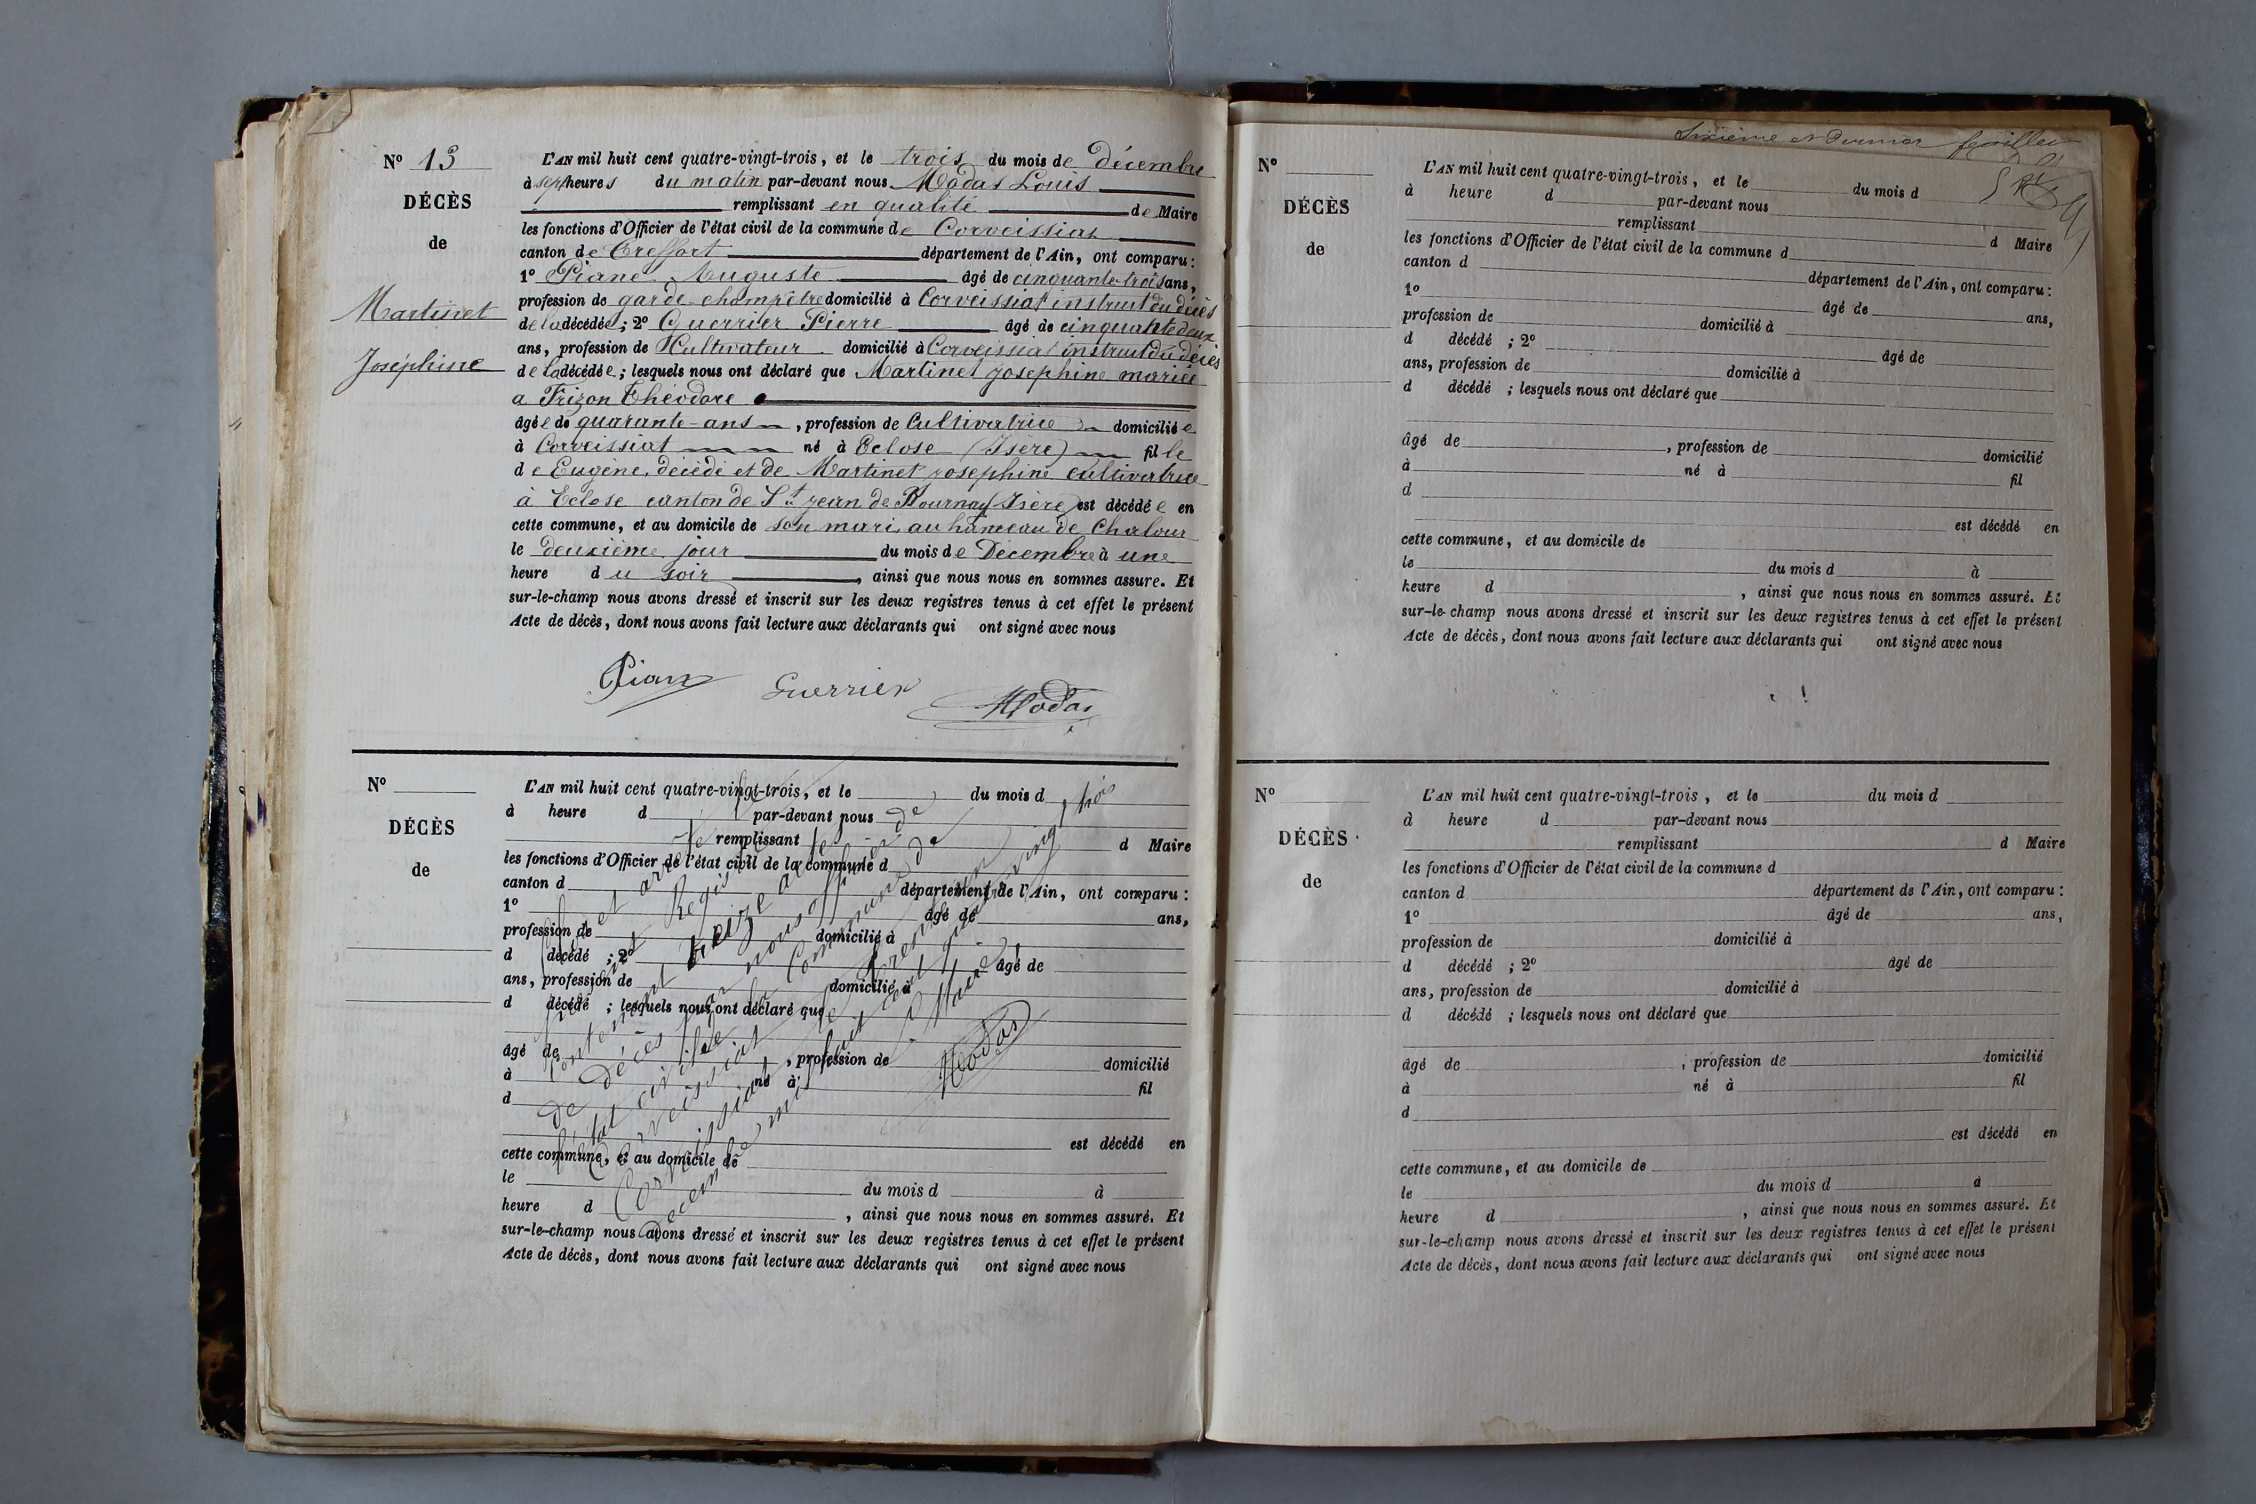 N° 13
DÉCÈS
de
Martinet
Joséphine
L'AN mil huit cent quatre-vingt-trois, et le trois du mois de décembre
à sept heures du matin par-devant nous Modas Louis
remplissant en qualité de Maire
les fonctions d'Officier de l'état civil de la commune de Corveissiat
canton de Treffort département de l'Ain, ont comparu :
1° Piane Auguste âgé de cinquante-trois ans,
profession de garde-champêtre domicilié à Corveissiat instruit du décès
de la décédée ; 2° Guerrier Pierre âgé de cinquante deux
ans, profession de Cultivateur domicilié à Corveissiat instruit du décès
de la décédée ; lesquels nous ont déclaré que Martinet josephine mariée
a Frizon Théodore
âgée de quarante-ans, profession de Cultivatrice domiciliée
à Corveissiat né à Eclose (Isère) fille
de Eugène, décédé et de Martinet josephine cultivatrice
à Eclose canton de St jean de Bournay Isère) est décédée en
cette commune, et au domicile de son mari au hameau de Chalour
le deuxième jour du mois de Décembre à une
heure du soir, ainsi que nous nous en sommes assuré. Et
sur-le-champ nous avons dressé et inscrit sur les deux registres tenus à cet effet le présent
Acte de décès, dont nous avons fait lecture aux déclarants qui ont signé avec nous
Pian Guerrier Modas
N°
DÉCÈS
de
L'AN mil huit cent quatre-vingt-trois, et le du mois d
à heure d par-devant nous
remplissant d Maire
les fonctions d'Officier de l'état civil de la commune d
canton d département de l'Ain, ont comparu :
1° âgé de ans,
profession de domicilié à
d décédé ; 2° âgé de
ans, profession de domicilié à
d décédé ; lesquels nous ont déclaré que
âgé de , profession de domicilié
à né à fil
d
est décédé en
cette commune, et au domicile de
le du mois d à
heure d , ainsi que nous nous en sommes assuré. Et
sur-le-champ nous avons dressé et inscrit sur les deux registres tenus à cet effet le présent
Acte de décès, dont nous avons fait lecture aux déclarants qui ont signé avec nous
et arrêté le
Registre
contenant treize actes
de décès par nous officier de
l'état civil de la Commune de
Corveissiat
Corveissiat le trente un
décembre mil huit cent quatre vingt trois
Le Maire
Modas
Sixième et Dernier feuillet
N°
DÉCÈS
de
L'AN mil huit cent quatre-vingt-trois, et le du mois d
à heure d par-devant nous
remplissant d Maire
les fonctions d'Officier de l'état civil de la commune d
canton d département de l'Ain, ont comparu :
1° âgé de ans,
profession de domicilié à
d décédé ; 2° âgé de
ans, profession de domicilié à
d décédé ; lesquels nous ont déclaré que
âgé de , profession de domicilié
à né à fil
d
est décédé en
cette commune, et au domicile de
le du mois d à
heure d , ainsi que nous nous en sommes assuré. Et
sur-le-champ nous avons dressé et inscrit sur les deux registres tenus à cet effet le présent
Acte de décès, dont nous avons fait lecture aux déclarants qui ont signé avec nous
N°
DÉCÈS
de
L'AN mil huit cent quatre-vingt-trois, et le du mois d
à heure d par-devant nous
remplissant d Maire
les fonctions d'Officier de l'état civil de la commune d
canton d département de l'Ain, ont comparu :
1° âgé de ans,
profession de domicilié à
d décédé ; 2° âgé de
ans, profession de domicilié à
d décédé ; lesquels nous ont déclaré que
âgé de , profession de domicilié
à né à fil
d
est décédé en
cette commune, et au domicile de
le du mois d à
heure d , ainsi que nous nous en sommes assuré. Et
sur-le-champ nous avons dressé et inscrit sur les deux registres tenus à cet effet le présent
Acte de décès, dont nous avons fait lecture aux déclarants qui ont signé avec nous